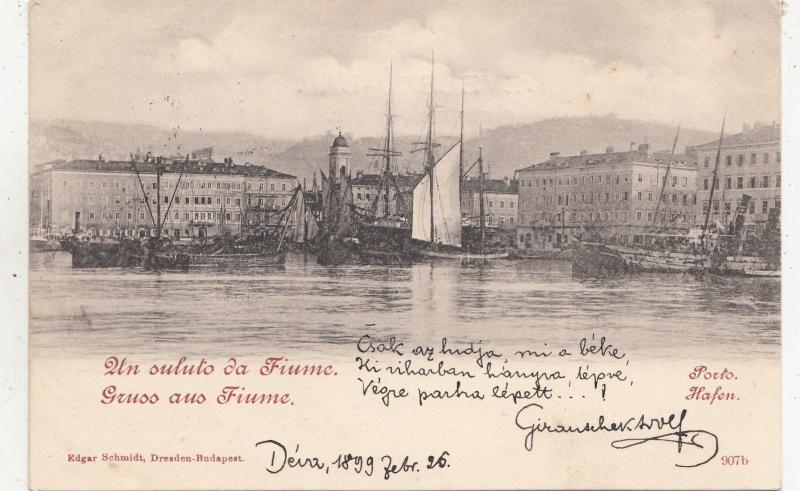 Un saluto da Fiume.
Gruss aus Fiume.
Csak az tudja, mi a béke,
Ki viharban hányva, tépve,
Végre partra lépett...!
Porto.
Hafen.
Edgar Schmidt, Dresden-Budapest.
Déva, 1899 febr. 26.
907b